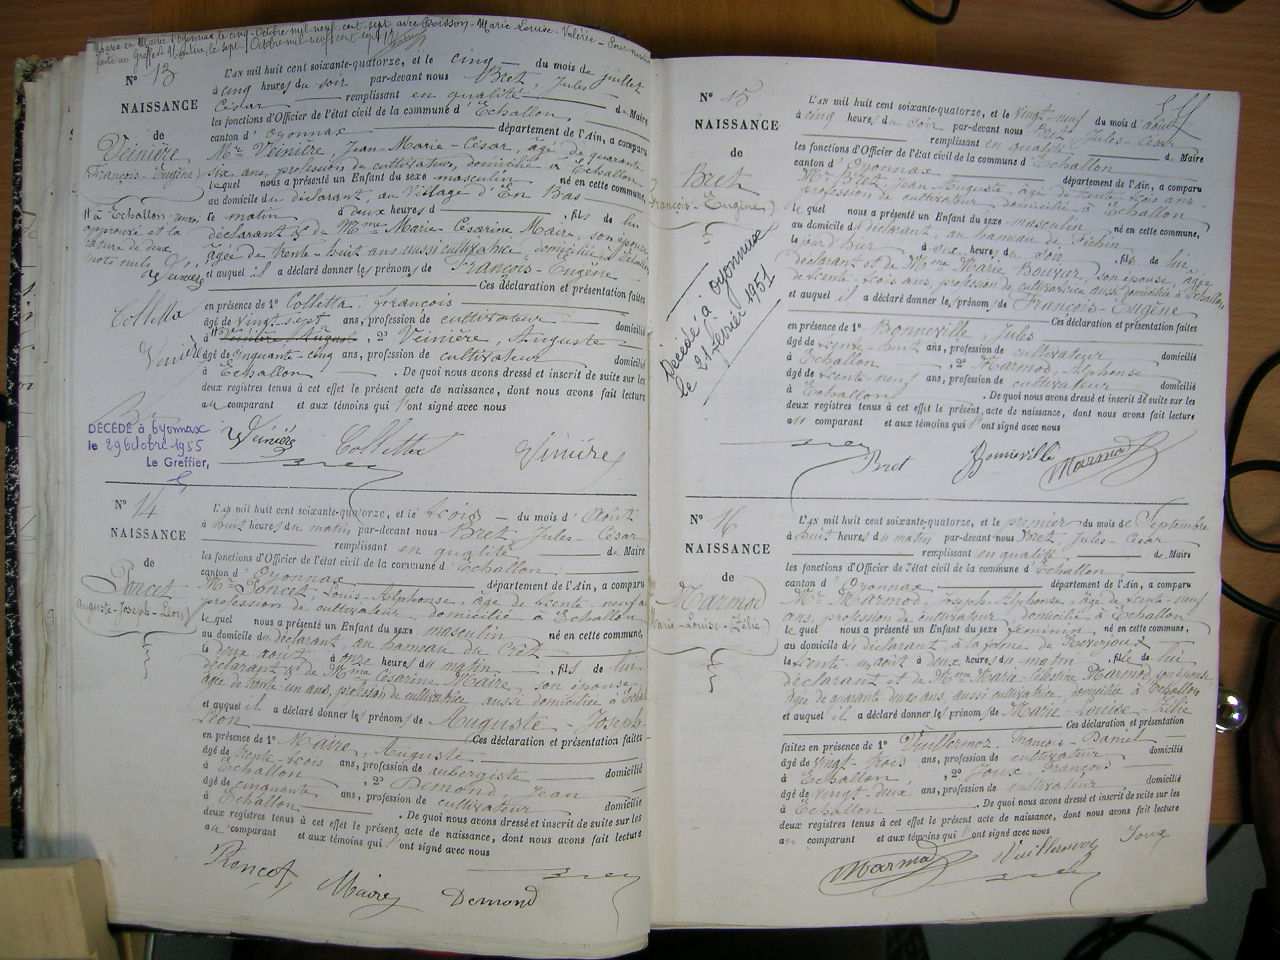 Marié en Mairie d'Oyonnax le cinq Octobre mil neuf cent sept avec Poisson Marie-Louise-Valérie
greffe Octobre mil neuf cent sept
N° 13
NAISSANCE
de
Veinière
(François-Eugène)
L'AN mil huit cent soixante-quatorze, et le cinq du mois de juillet
à cinq heures du soir par-devant nous Bret, Jules
César remplissant en qualité de Maire
les fonctions d'Officier de l'état civil de la commune d'Echallon
canton d'Oyonnax département de l'Ain, a comparu
Mr Veinière Jean-Marie-César, âgé de quarante
six ans, profession de cultivateur, domicilié à Echallon
lequel nous a présenté un Enfant du sexe masculin né en cette commune,
au domicile du déclarant au Village d'En Bas
le matin à deux heures d , fils de lui
déclarant et de Mme Marie Césarine Maire, son épouse
âgée de trente-huit ans aussi cultivatrice, domiciliée à Echallon
et auquel il a déclaré donner les prénoms de François-Eugène
Ces déclaration et présentation faites
en présence de 1° Colletta François
âgé de vingt sept ans, profession de cultivateur domicilié
, 2° Veinière, Auguste
âgé de cinquante-cinq ans, profession de cultivateur domicilié
à Echallon . De quoi nous avons dressé et inscrit de suite sur les
deux registres tenus à cet effet le présent acte de naissance, dont nous avons fait lecture
au comparant et aux témoins qui l'ont signé avec nous
à Echallon
approuvé et la
rature de deux
mots nuls
Colletta
DÉCÉDÉ à Oyonnax
le 29 Octobre 1955
Le Greffier,
Veinière Colletta Vinière
N° 14
NAISSANCE
de
Poncet
Auguste-Joseph-Léon
L'AN mil huit cent soixante-quatorze, et le trois du mois d'Août
à huit heures du matin par-devant nous Bret, Jules-César
remplissant en qualité de Maire
les fonctions d'Officier de l'état civil de la commune d'Echallon
canton d'Oyonnax département de l'Ain, a comparu
Mr Poncet Louis-Alphonse, âgé de trente neuf ans
profession de cultivateur domicilié à Echallon
lequel nous a présenté un Enfant du sexe masculin né en cette commune,
au domicile du déclarant au hameau du Crêt
le deux août à onze heures du matin , fils de lui
déclarant et de Mme Césarine Maire, son épouse
âgée de trente un ans, profession de cultivatrice aussi domiciliée à Echallon
et auquel il a déclaré donner les prénoms de Auguste-Joseph
Léon Ces déclaration et présentation faites
en présence de 1° Maire, Auguste
âgé de trente-trois ans, profession de aubergiste domicilié
à Echallon , 2° Demond, Jean
âgé de cinquante ans, profession de cultivateur domicilié
à Echallon . De quoi nous avons dressé et inscrit de suite sur les
deux registres tenus à cet effet le présent acte de naissance, dont nous avons fait lecture
au comparant et aux témoins qui l'ont signé avec nous
Poncet Maire Demond
N° 15
NAISSANCE
de
Bret
(François-Eugène)
Décédé à Oyonnax
le 21 février 1951
L'AN mil huit cent soixante-quatorze, et le vingt-neuf du mois d'Août
à cinq heures du soir par-devant nous Bret, Jules-César
remplissant en qualité de Maire
les fonctions d'Officier de l'état civil de la commune d'Echallon
canton d'Oyonnax département de l'Ain, a comparu
Mr Bret, Jean Auguste, âgé de trente trois ans
profession de cultivateur domicilié à Echallon
lequel nous a présenté un Enfant du sexe masculin né en cette commune,
au domicile du déclarant, au hameau de
le jour d'hui à six heures du soir , fils de lui
déclarant et de Mme Marie Bouvier, son épouse, âgée
de trente-trois ans, profession de cultivatrice aussi domiciliée à Echallon
et auquel il a déclaré donner les prénoms de François-Eugène
Ces déclaration et présentation faites
en présence de 1° Bonneville, Jules
âgé de trente-huit ans, profession de cultivateur domicilié
à Echallon , 2° Marmod, Alphonse
âgé de trente-neuf ans, profession de cultivateur domicilié
à Echallon . De quoi nous avons dressé et inscrit de suite sur les
deux registres tenus à cet effet le présent acte de naissance, dont nous avons fait lecture
au comparant et aux témoins qui l'ont signé avec nous
Bret Bonneville Marmod
N° 16
NAISSANCE
de
Marmod
Marie-Louise-Zélie
L'AN mil huit cent soixante-quatorze, et le premier du mois de Septembre
à huit heures du matin par-devant nous Bret, Jules-César
remplissant en qualité de Maire
les fonctions d'Officier de l'état civil de la commune d'Echallon
canton d'Oyonnax département de l'Ain, a comparu
Mr Marmod, Joseph-Alphonse âgé de trente-neuf
ans, profession de cultivateur domicilié à Echallon
lequel nous a présenté un Enfant du sexe féminin né en cette commune,
au domicile du déclarant à la ferme de
le trente un août à deux heures du matin , fille de lui
déclarant et de Mme Marie-Célestine Marmod son épouse
âgée de quarante deux ans, aussi cultivatrice, domiciliée à Echallon
et auquel il a déclaré donner les prénoms de Marie-Louise-Zélie
Ces déclaration et présentation
faites en présence de 1° Vuillermoz, François-Daniel
âgé de vingt-trois ans, profession de cultivateur domicilié
à Echallon , 2° Joux, François
âgé de vingt deux ans, profession de cultivateur domicilié
à Echallon . De quoi nous avons dressé et inscrit de suite sur les
deux registres tenus à cet effet le présent acte de naissance, dont nous avons fait lecture
au comparant et aux témoins qui l'ont signé avec nous
Marmod Vuillermoz Joux